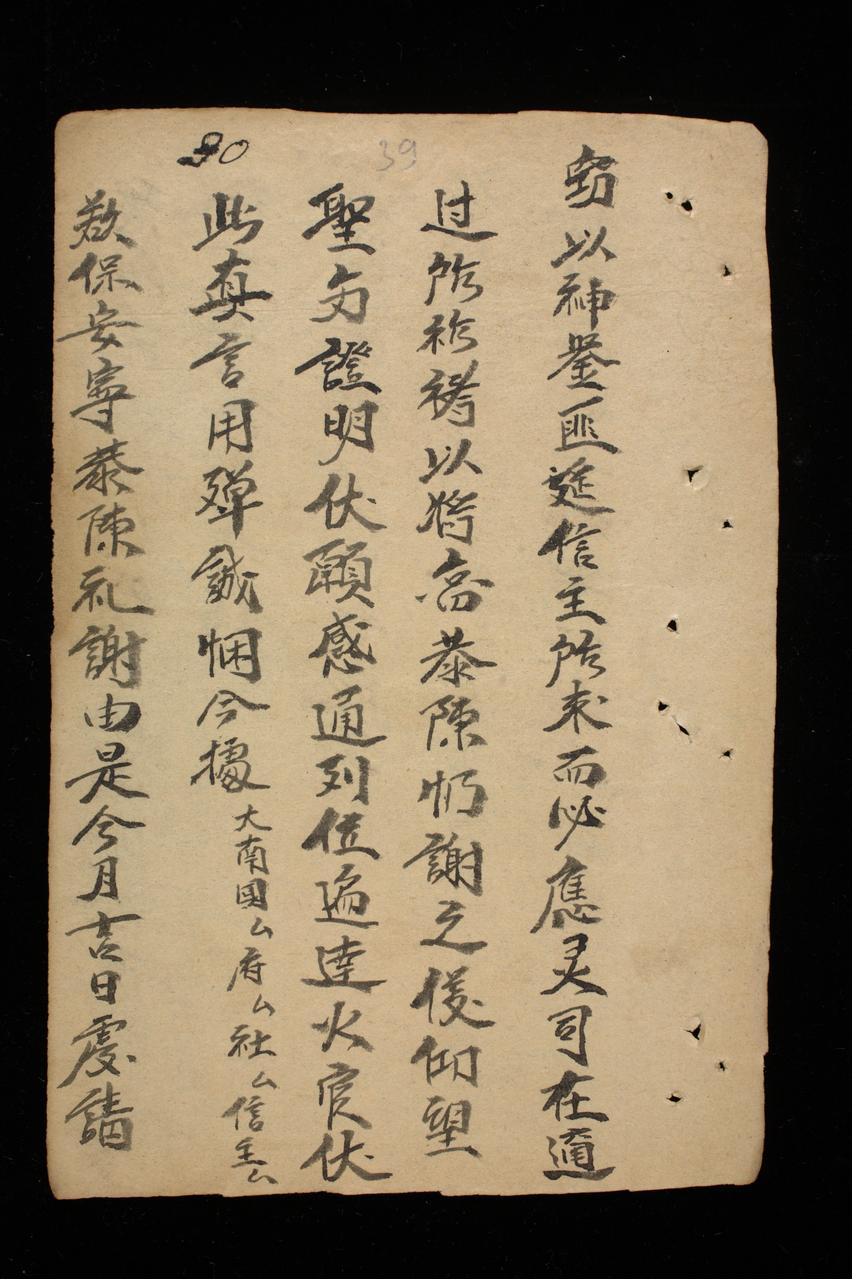 窃以神鉴匪遥信主所求而必應灵司在邇
过所祈禱以将畣恭陳怀謝之後仰望
聖多證明伏願感通列位遍達火官伏
此真言用殫誠悃今據大南國厶府厶社厶信主厶
欲保安寧恭陳礼謝由是今月吉日虔請
39
90